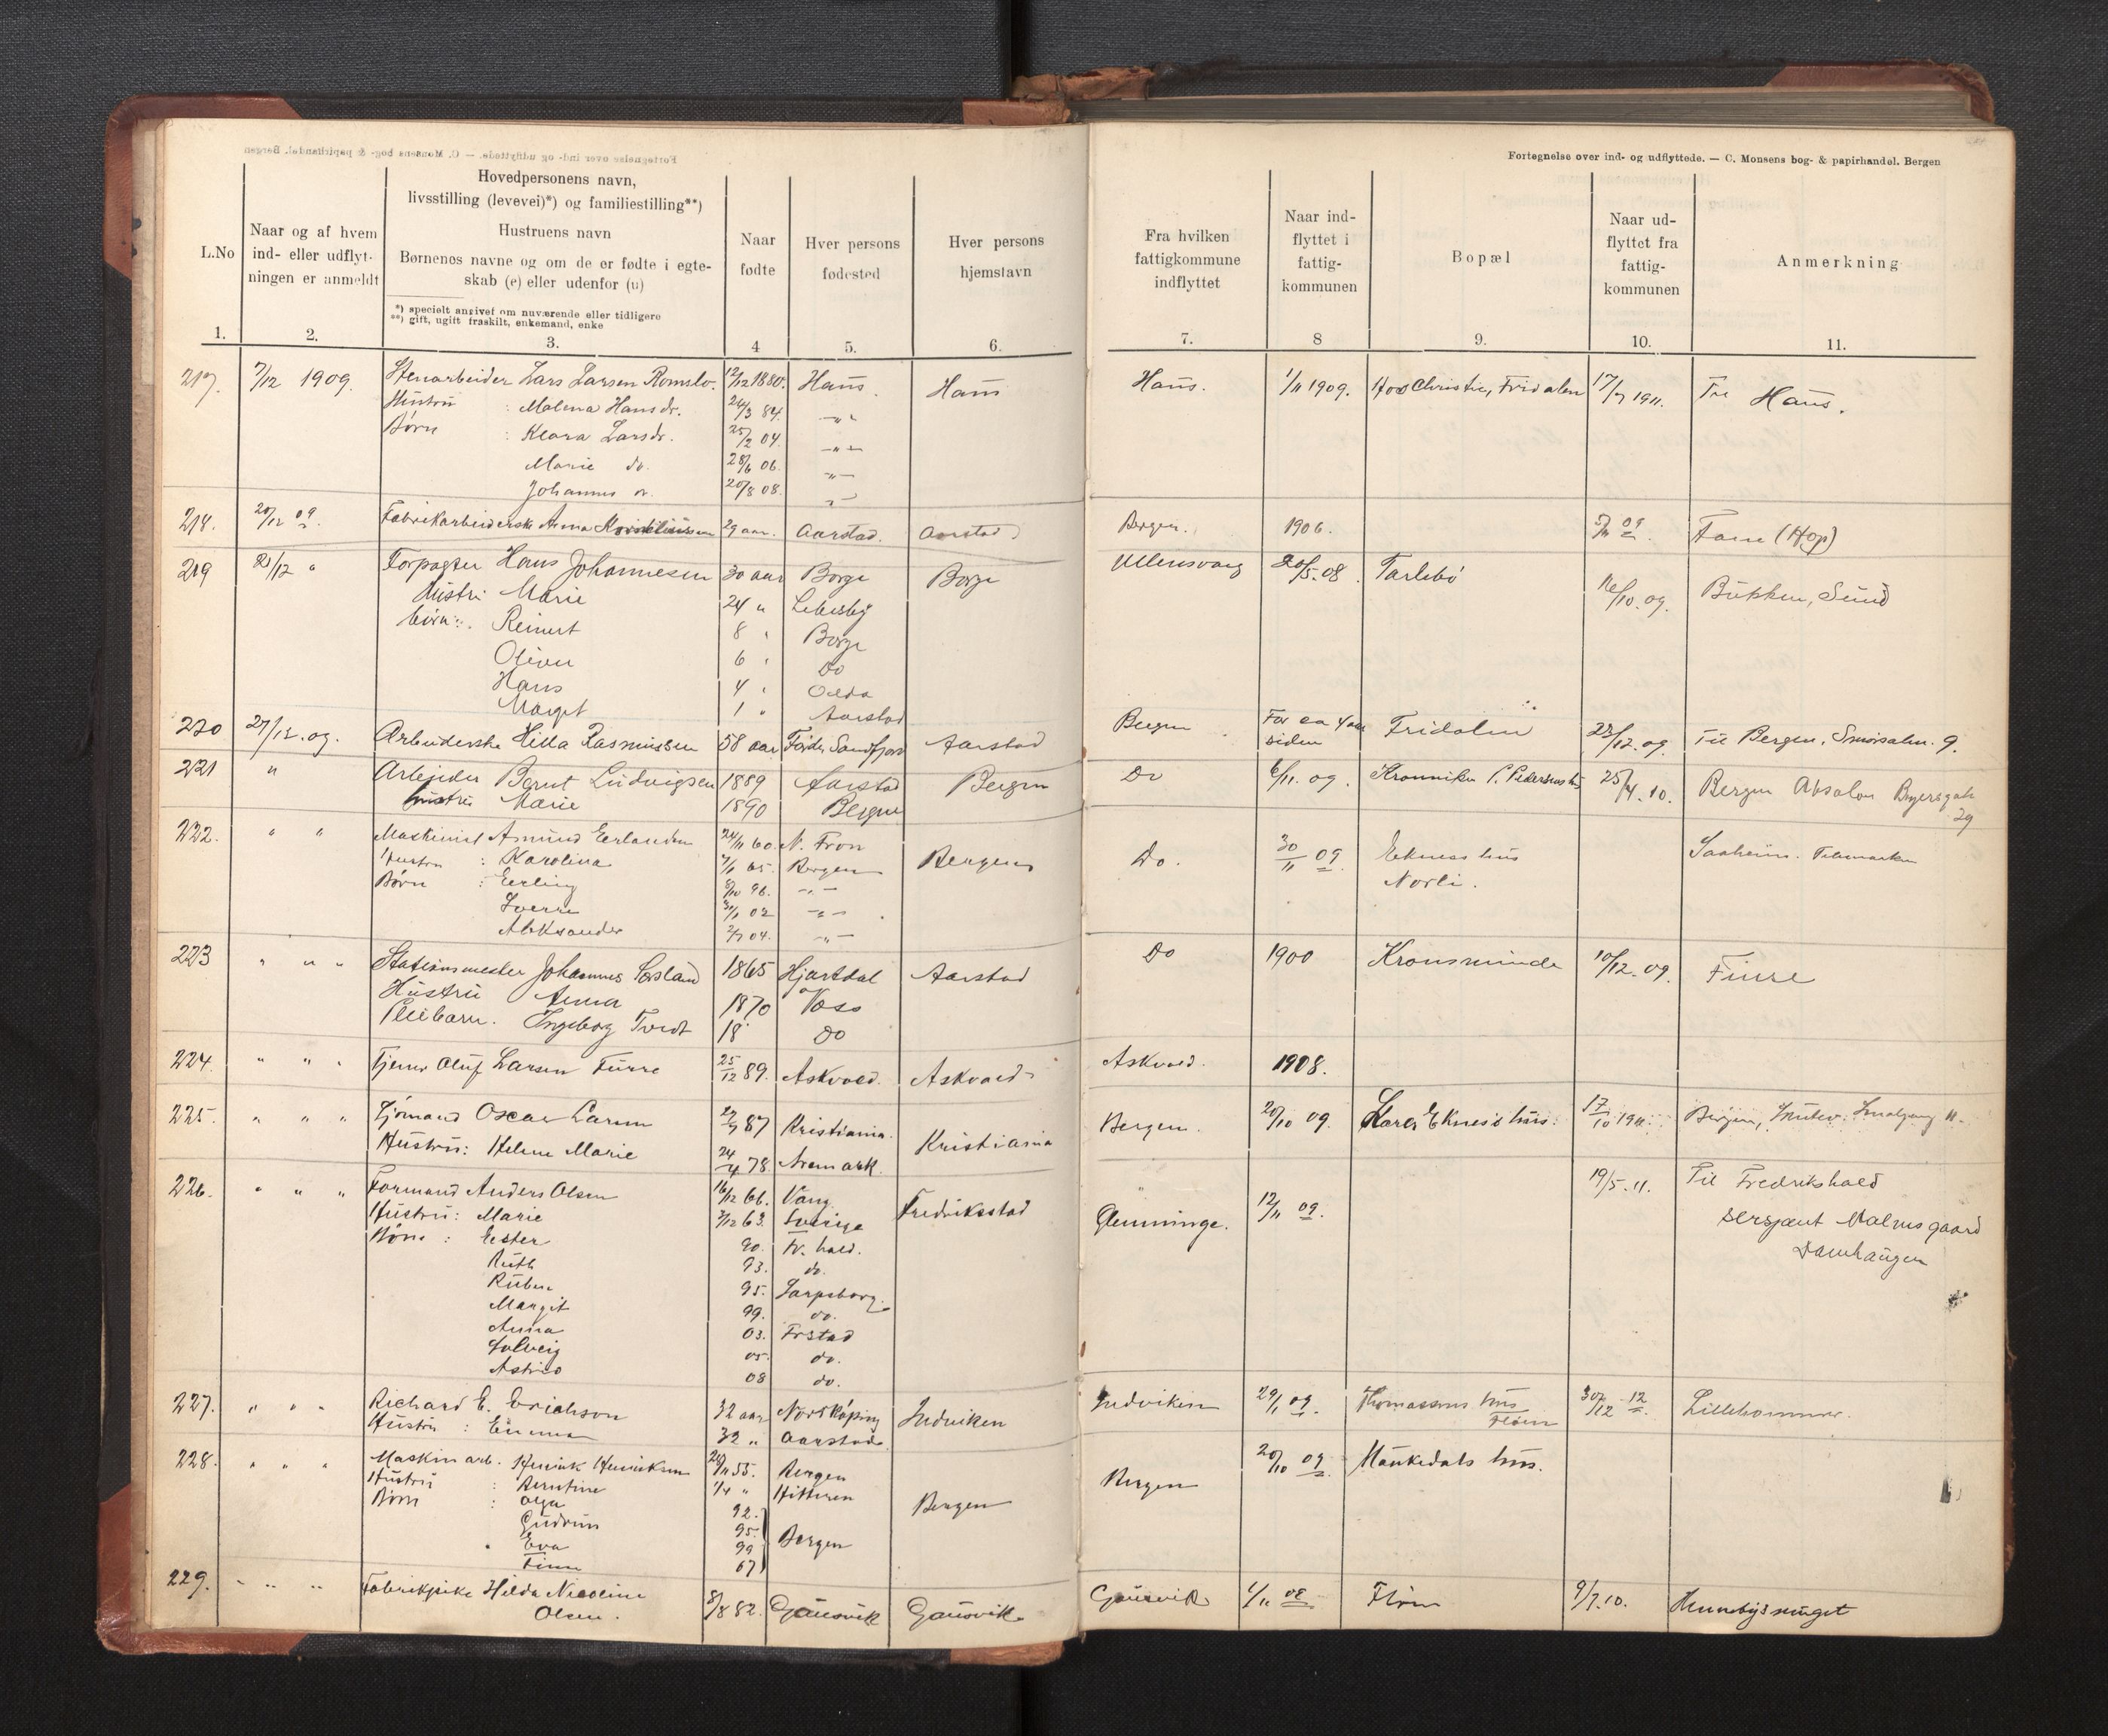 Fortegnelse over ind- og udflyttede. — C. Monsens bog- & papirhandel. Bergen
L.No
Naar og af hvem
ind- eller udflyt-
ningen er anmeldt
Hovedpersonens navn,
livsstilling (levevei)*) og familiestilling**)
Hustruens navn
Børnenes navne og om de er fødte i egte-
skab (e) eller udenfor (u)
*) specielt angivet om nuværende eller tidligere
**) gift, ugift fraskilt, enkemand, enke
Naar
fødte
Hver persons
fødested
Hver persons
hjemstavn
Fra hvilken
fattigkommune
indflyttet
Naar ind-
flyttet i
fattig-
kommunen
Bopæl
Naar ud-
flyttet fra
fattig-
kommunen
Anmerkning
1. 2. 3. 4 5. 6. 7. 8 9. 10. 11.
217. 7/12 1909. Stenarbeider Lars Larsen Romslo. 12/12 1880. Haus. Haus Haus. 1/11 1909. Hos Christie, Fridalen 17/7 1911. Til Haus.
Hustru : Malena Hansdr. 24/3 84. -"-
Børn : Klara Larsdr. 25/2 04. -"-
Marie do. 28/6 06. -"-
Johannes 20/8 08. -"-
218. 20/12 09. Fabrikarbeiderske Anna 29 aar. Aarstad. Aarstad Bergen. 1906. 09. Fane (Hop)
219 21/12 " Forpagter Hans Johannesen 30 aar Borge Borge Ullensvang 20/5.08. Tarlebø 16/10.09. Bukken, Sund
Hustri Marie 24 " Lebesby
børn: Reinert 8 " Borge
Oliver 6 " Do
Hans 4 " Odda
Margit 1 " Aarstad
220 27/12.09. Arbeiderske Hilla Rasmussen 58 aar Førde, Søndfjord Aarstad Bergen For ca 4 aar Fridalen 23/12.09. Til Bergen, Smørsalm. 9.
siden
221 " Arbeider Bernt Ludvigsen 1889 Aarstad Bergen Do 6/11.09. Kronviken P. Pedersens hs 25/4.10. Bergen Absalon Beyersgate
hustru Marie 1890 Bergen 29
222. " " Maskinist Amund Erlandsen 24/11 60. N. Fron Bergen Do. 30/11 09 Eknes hus Saaheim. Telemarken
Hustru : Karolina 7/1 65. Bergen Norli.
Børn : Erling 8/10 96. -"-
Sverre 30/1 02 -"-
Aleksander 2/7 04. -"-
223 " " " Stationsmester Johannes 1865 Hjartdal Aarstad Do 1900 Kronsminde 10/12.09. Finse
Hustru Anna 1870 Voss
Pleibarn. Ingeborg Tvedt 18 Do
224. " " " Tjener Oluf Larsen Furre 25/12 89. Askvold. Askvold Askvold. 1908.
225. " " " Sjømand Oscar Larsen 87 Kristiania. Kristiania Bergen. 20/10 09. Eknes's hus. 17/10 1911. Bergen, Smalgang 11.
Hustru: Helene Marie 24/4 78. Aremark.
226. " " " Formand Anders Olsen 16/12 66. Vang Fredrikstad Glemminge. 12/11 09. 19/5.11. Til Fredrikshald
Hustru: Marie 7/12 63. Sverige Sersjant Malmsgaard
Børn : Ester 90. Fr. hald. Damhaugen
Ruth 93. do.
Ruben 95. Sarpsborg.
Margit 99. do.
Anna 03. Frstad
Solveig 05. do.
Astrid 08 do.
227. " " " Richard E. Erichson 32 aar Nordköping Indviken Indviken 29/1 09. Thomassens hus 30/12 12. Lillehammer.
Hustru : Emma 32 " Aarstad. Fløen
228. " " " Maskinarb. Henrik Henriksen 28/11 55. Bergen Bergen Bergen 20/10 09. Munkedals hus.
Hustru : Berntine 1/4 " Hitteren
Børn : Olga 92.
Gudrun 95. Bergen
Eva 99
Finn 07
229. " " " Fabrikpike Hilda Nicoline 8/8 82. Gausvik Gausvik Gausvik 1/11 08 Fløen 9/7.10. Hunebysmuget
Olsen.